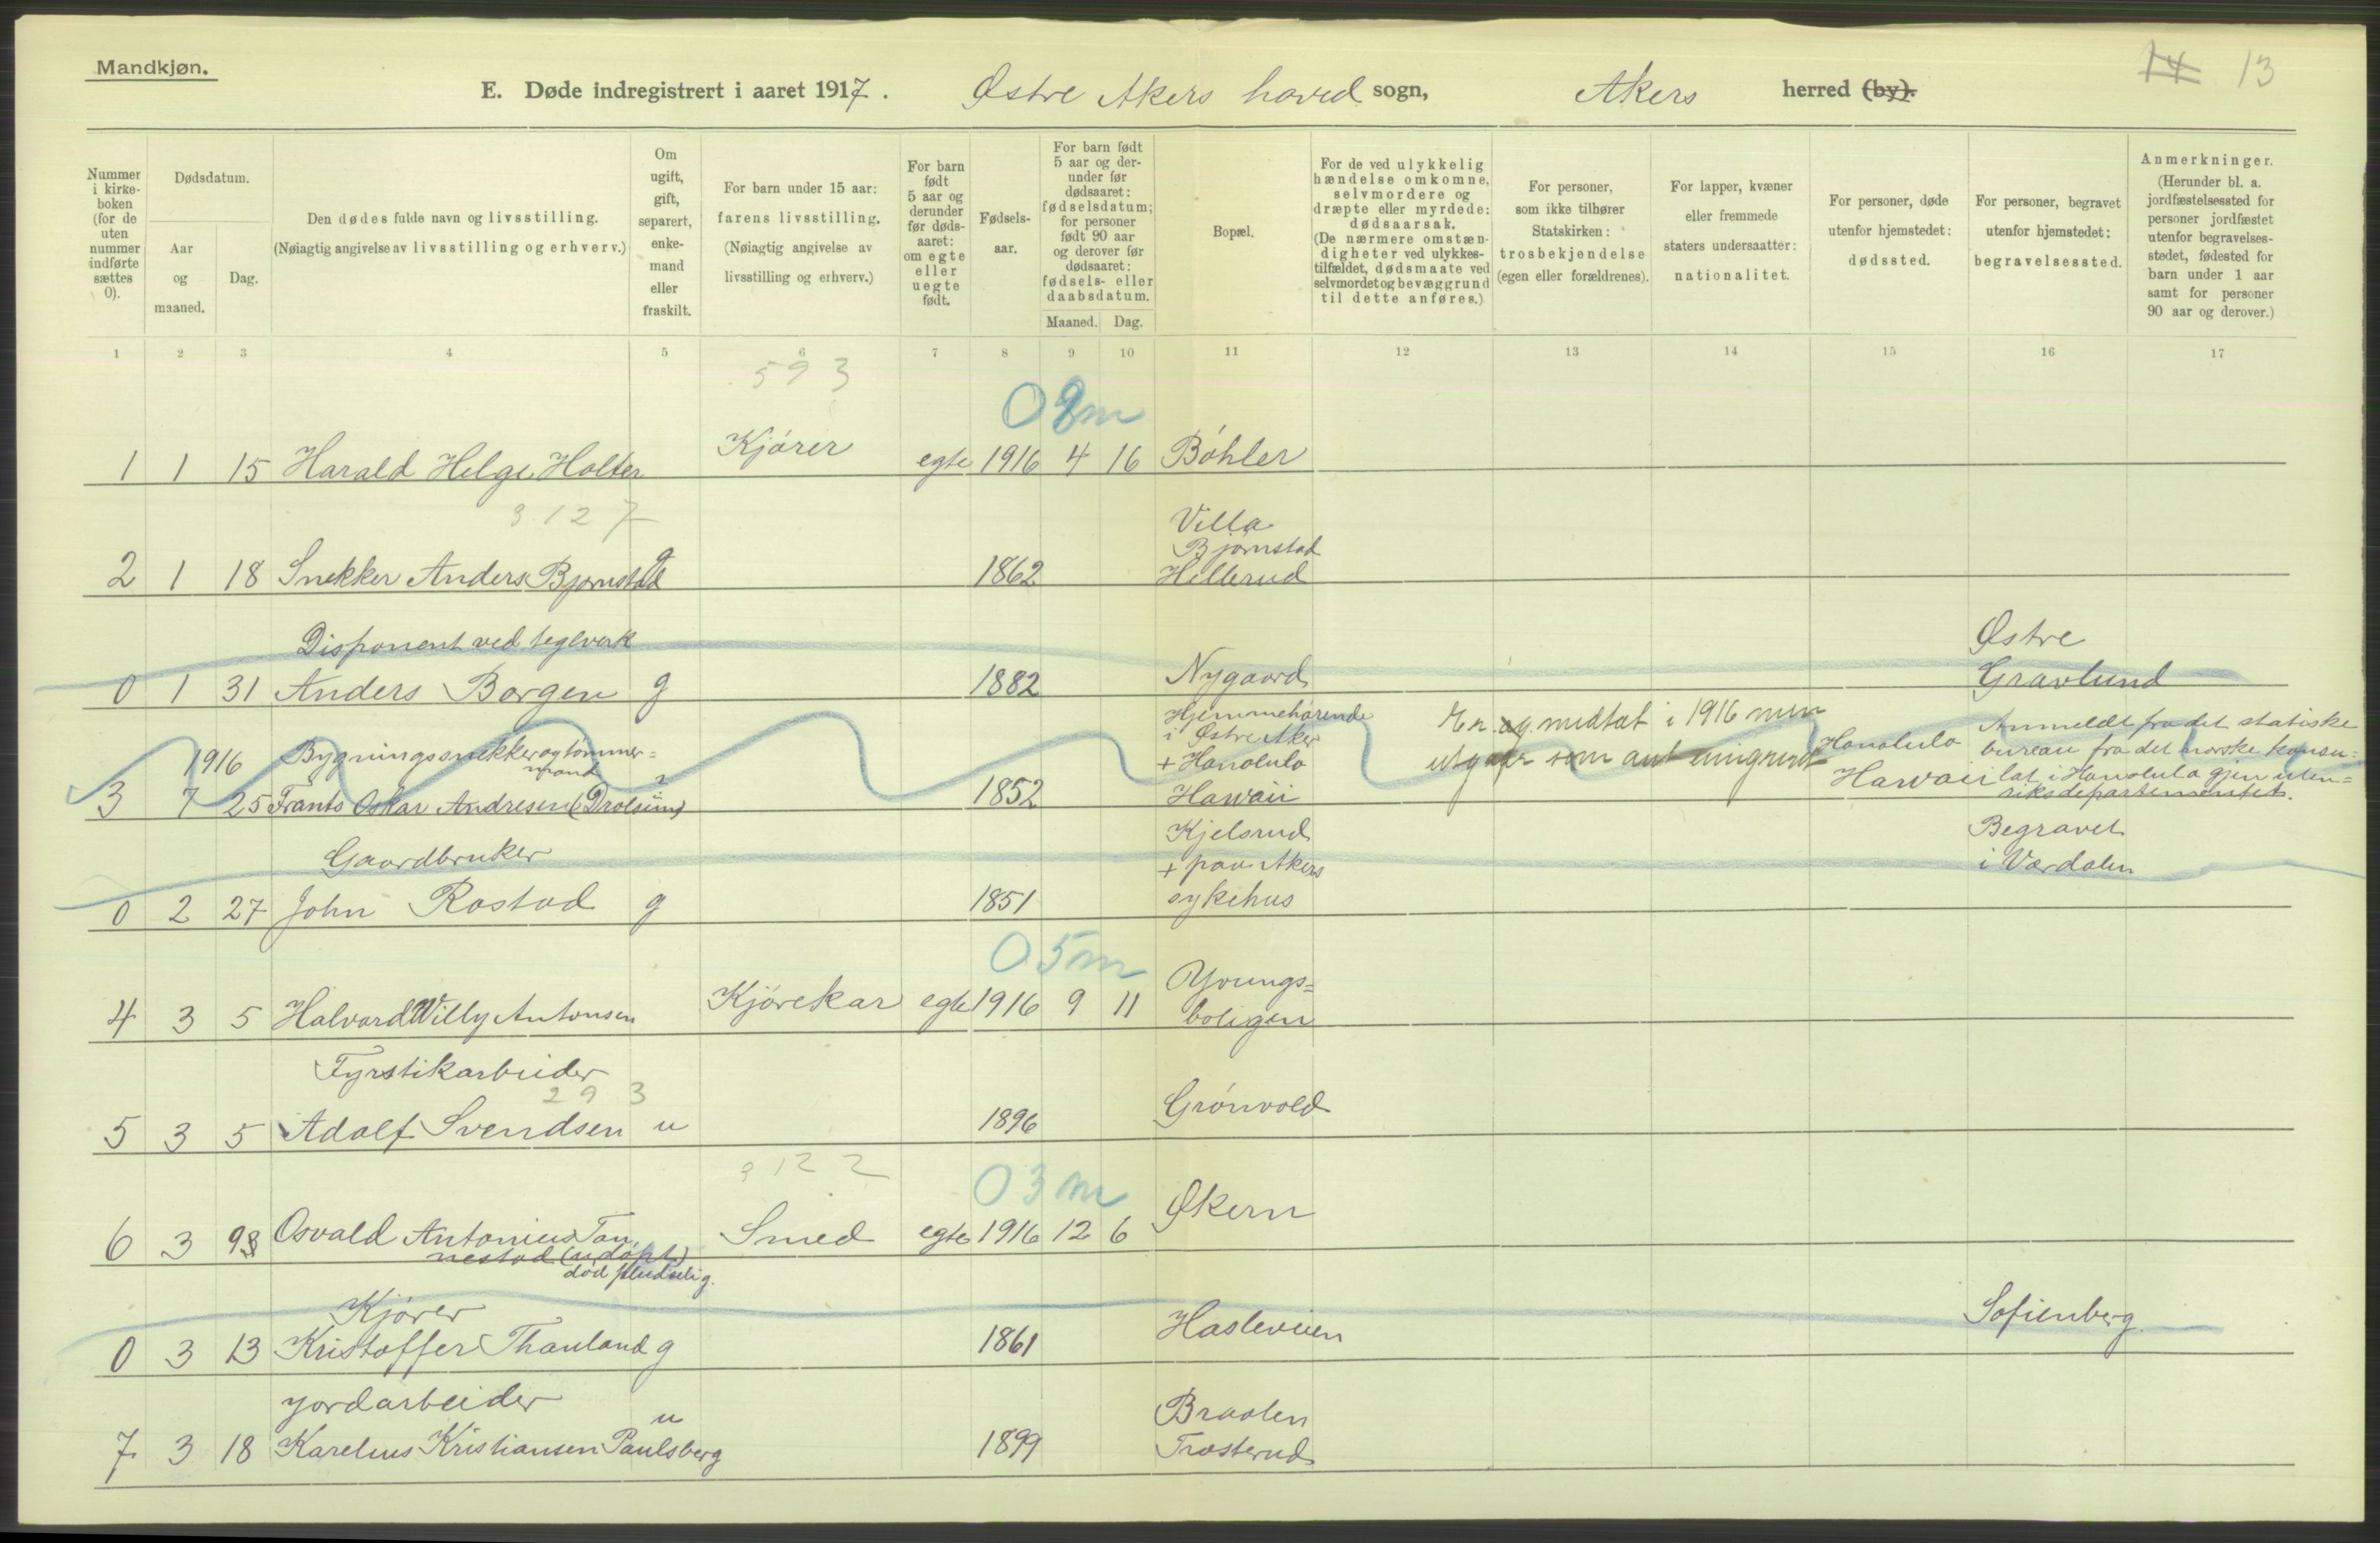 Mandkjøn.
14 13
E. Døde indregistrert i aaret 1917. Østre Akers hoved sogn, Akers herred (by).
Nummer i kirke-boken (for de uten nummer indførte sættes 0).
Dødsdatum.
Aar og maaned.
Dag.
Den dødes fulde navn og livsstilling.
(Nøiagtig angivelse av livsstilling og erhverv.)
Om ugift, gift, separert, enke-mand eller fraskilt.
For barn under 15 aar: farens livsstilling.
(Nøiagtig angivelse av livsstilling og erhverv.)
For barn født 5 aar og derunder før døds-aaret: om egte eller uegte født.
Fødsels-aar.
For barn født 5 aar og der-under før dødsaaret: fødselsdatum; for personer født 90 aar og derover før dødsaaret: fødsels- eller daabsdatum.
Maaned. Dag.
Bopæl.
For de ved ulykkelig hændelse omkomne, selvmordere og dræpte eller myrdede: dødsaarsak.
(De nærmere omstæn-digheter ved ulykkes-tilfældet, dødsmaate ved selvmordet og bevæggrund til dette anføres.)
For personer, som ikke tilhører Statskirken: trosbekjendelse (egen eller forældrenes).
For lapper, kvæner eller fremmede staters undersaatter: nationalitet.
For personer, døde utenfor hjemstedet: dødssted.
For personer, begravet utenfor hjemstedet: begravelsessted.
Anmerkninger.
(Herunder bl. a. jordfæstelsessted for personer jordfæstet utenfor begravelses-stedet, fødested for barn under 1 aar samt for personer 90 aar og derover.)
1 2 3 4 5 6 7 8 9 10 11 12 13 14 15 16 17
593
0 8m
1 1 15 Harald Helge Holter Kjører egte 1916 4 16 Bøhler
3127
Villa
Bjørnstad
2 1 18 Snekker Anders Bjørnstad g 1862 Hellerud
Disponent ved teglverk Østre
0 1 31 Anders Borgen g 1882 Nygaard Gravlund
Hjemmehørende
i Østre Aker
1916 Bygningssnekker og tømmer=
mand + Honolulu
3 7 25 Frants Oskar Andresen (Drolsum) ? 1852 Hawaii
Er og medtat i 1916 men
utgaar som ant emigrert
Honolulu
Hawaii
Anmeldt fra det statiske
bureau fra det norske konsu=
lat i Honolulu gjen uten=
riksdepartementet.
Gaardbruker Kjelsrud Begravet
+ paa Akers i Værdalen
0 2 27 John Rostad g 1851 sykehus
0 5m
Youngs=
4 3 5 Halvard Willy Antonsen Kjørekar egte 1916 9 11 boligen
Fyrstikarbeider
293
5 3 5 Adolf Svendsen u 1896 Grønvold
3122
0 3m
6 3 9 Osvald Antonius Tan Smed egte 1916 12 6 Økern
nestad (udøpt)
død pludselig.
Kjører
0 3 13 Kristoffer Thauland g 1861 Hasleveien Sofienberg.
Jordarbeider Braaten
7 3 18 Karelius Kristiansen Paulsberg u 1899 Trosterud